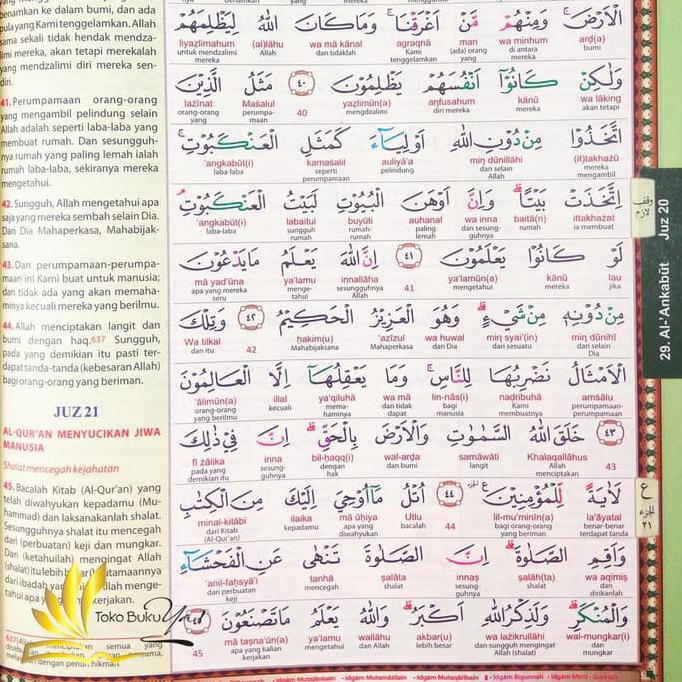 benamkan ke dalam bumi, dan ada
pula yang Kami tenggelamkan. Allah
sama sekali tidak hendak mendza-
limi mereka, akan tetapi merekalah
yang mendzalimi diri mereka sen-
diri.
41. Perumpamaan orang-orang
yang mengambil pelindung selain
Allah adalah seperti laba-laba yang
membuat rumah. Dan sesungguh-
nya rumah yang paling lemah ialah
rumah laba-laba, sekiranya mereka
mengetahui.
42. Sungguh, Allah mengetahui apa
saja yang mereka sembah selain Dia.
Dan Dia Mahaperkasa, Mahabijak-
sana.
43. Dan perumpamaan-perumpa-
maan ini Kami buat untuk manusia;
dan tidak ada yang akan memaha-
minya kecuali mereka yang berilmu.
44. Allah menciptakan langit dan
bumi dengan haq.637 Sungguh,
pada yang demikian itu pasti ter-
dapat tanda-tanda (kebesaran Allah)
bagi orang-orang yang beriman.
JUZ 21
AL-QUR'AN MENYUCIKAN JIWA
MANUSIA
Shalat mencegah kejahatan
45. Bacalah Kitab (Al-Qur'an) yang
telah diwahyukan kepadamu (Mu-
hammad) dan laksanakanlah shalat.
Sesungguhnya shalat itu mencegah
dari (perbuatan) keji dan mungkar.
Dan (ketahuilah) mengingat Allah
(shalat) itu lebih
dari ibadah
tahui apa kerjakan.
Toko Buku Yud
الْأَرْضَ وَمِنْهُمْ مَّنْ أَغْرَقْنَا وَمَاكَانَ اللهُ لِيَظْلِمَهُمْ
liyaẓlimahum (al)lāhu wa mā kānal agraqnā man wa minhum arḍ(a)
untuk mendzalimi mereka Allah dan tidaklah Kami tenggelamkan (ada) orang di antara mereka bumi
وَلٰكِنْ كَانُوْا أَنْفُسَهُمْ يَظْلِمُوْنَ ٤٠ مَثَلُ الَّذِيْنَ
lażīnat Maṡalul 40 yaẓlimūn(a) anfusahum kānū wa lāking
orang-orang yang perumpamaan mendzalimi diri mereka mereka akan tetapi
اتَّخَذُوْا مِنْ دُوْنِ اللهِ أَوْلِيَاءَ كَمَثَلِ الْعَنْكَبُوْتِ
'angkabūt(i) kamaṡalil auliyā'a min dūnillāhi (it)takhażū
laba-laba seperti perumpamaan pelindung dari selain Allah mereka mengambil
اِتَّخَذَتْ بَيْتًا وَإِنَّ أَوْهَنَ الْبُيُوْتِ لَبَيْتُ الْعَنْكَبُوْتِ
'angkabūt(i) labaitul buyūti auhanal wa inna baitā(n) ittakhażat
laba-laba sungguh rumah rumah-rumah paling lemah dan sesungguhnya rumah ia membuat
لَوْ كَانُوْا يَعْلَمُوْنَ ٤١ إِنَّ اللهَ يَعْلَمُ مَا يَدْعُوْنَ
mā yad'ūna ya'lamu innallāha 41 ya'lamūn(a) kānū lau
apa yang mereka seru mengetahui sesungguhnya Allah mengetahui mereka jika
مِنْ دُوْنِهِ مِنْ شَيْءٍ وَهُوَ الْعَزِيْزُ الْحَكِيْمُ ٤٢ وَتِلْكَ
Wa tilkal 42 ḥakīm(u) 'azīzul wa huwal min syai'(in) min dūnihī
dan itu Mahabijaksana Mahaperkasa dan Dia dari sesuatu dari selain Dia
الْأَمْثَالُ نَضْرِبُهَا لِلنَّاسِ وَمَا يَعْقِلُهَا إِلَّا الْعَالِمُوْنَ
'ālimūn(a) illal ya'qiluhā wa mā lin-nās(i) naḍribuhā amṡālu
orang-orang yang berilmu kecuali memahaminya dan tidak dapat bagi manusia Kami membuatnya perumpamaan-perumpamaan
٤٣ خَلَقَ اللهُ السَّمٰوٰتِ وَالْأَرْضَ بِالْحَقِّ إِنَّ فِيْ ذٰلِكَ
fī żālika inna bil-ḥaqq(i) wal-arḍa samāwāti Khalaqallāhus 43
pada yang demikian itu sesungguhnya dengan hak dan bumi langit Allah menciptakan
لَاٰيَةً لِّلْمُؤْمِنِيْنَ ٤٤ اُتْلُ مَا أُوْحِيَ إِلَيْكَ مِنَ الْكِتٰبِ
minal-kitābi ilaika mā ūḥiya Utlu 44 lil-mu'minīn(a) la'āyatal
dari Kitab (Al-Qur'an) kepadamu apa yang diwahyukan bacalah bagi orang-orang yang beriman benar-benar terdapat tanda
وَأَقِمِ الصَّلٰوةَ إِنَّ الصَّلٰوةَ تَنْهٰى عَنِ الْفَحْشَاءِ
'anil-faḥsyā'i tanhā ṣalāta innaṣ ṣalāh(ta) wa aqimiṣ
dari perbuatan keji mencegah shalat sesungguhnya shalat dan dirikanlah
وَالْمُنْكَرِ وَلَذِكْرُ اللهِ أَكْبَرُ وَاللهُ يَعْلَمُ مَا تَصْنَعُوْنَ
45 mā taṣna'ūn(a) ya'lamu wallāhu akbar(u) wa lażikrullāhi wal-mungkar(i)
apa yang kalian kerjakan mengetahui dan Allah lebih besar dan sungguh mengingat Allah (shalat) dan mungkar
وقف لازم
29. Al-'Ankabūt Juz 20
ع
الجزء
٢١
Idgām Mutajānisain Idgām Mutamāṡilain Idgām Mutaqāribain Idgām Bigunnah Idgām Mimi